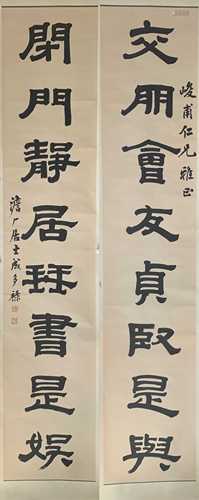 峻甫仁兄雅正
交朋會友貞臤是與
閉門靜居琴書是娛
澹厂居士成多祿